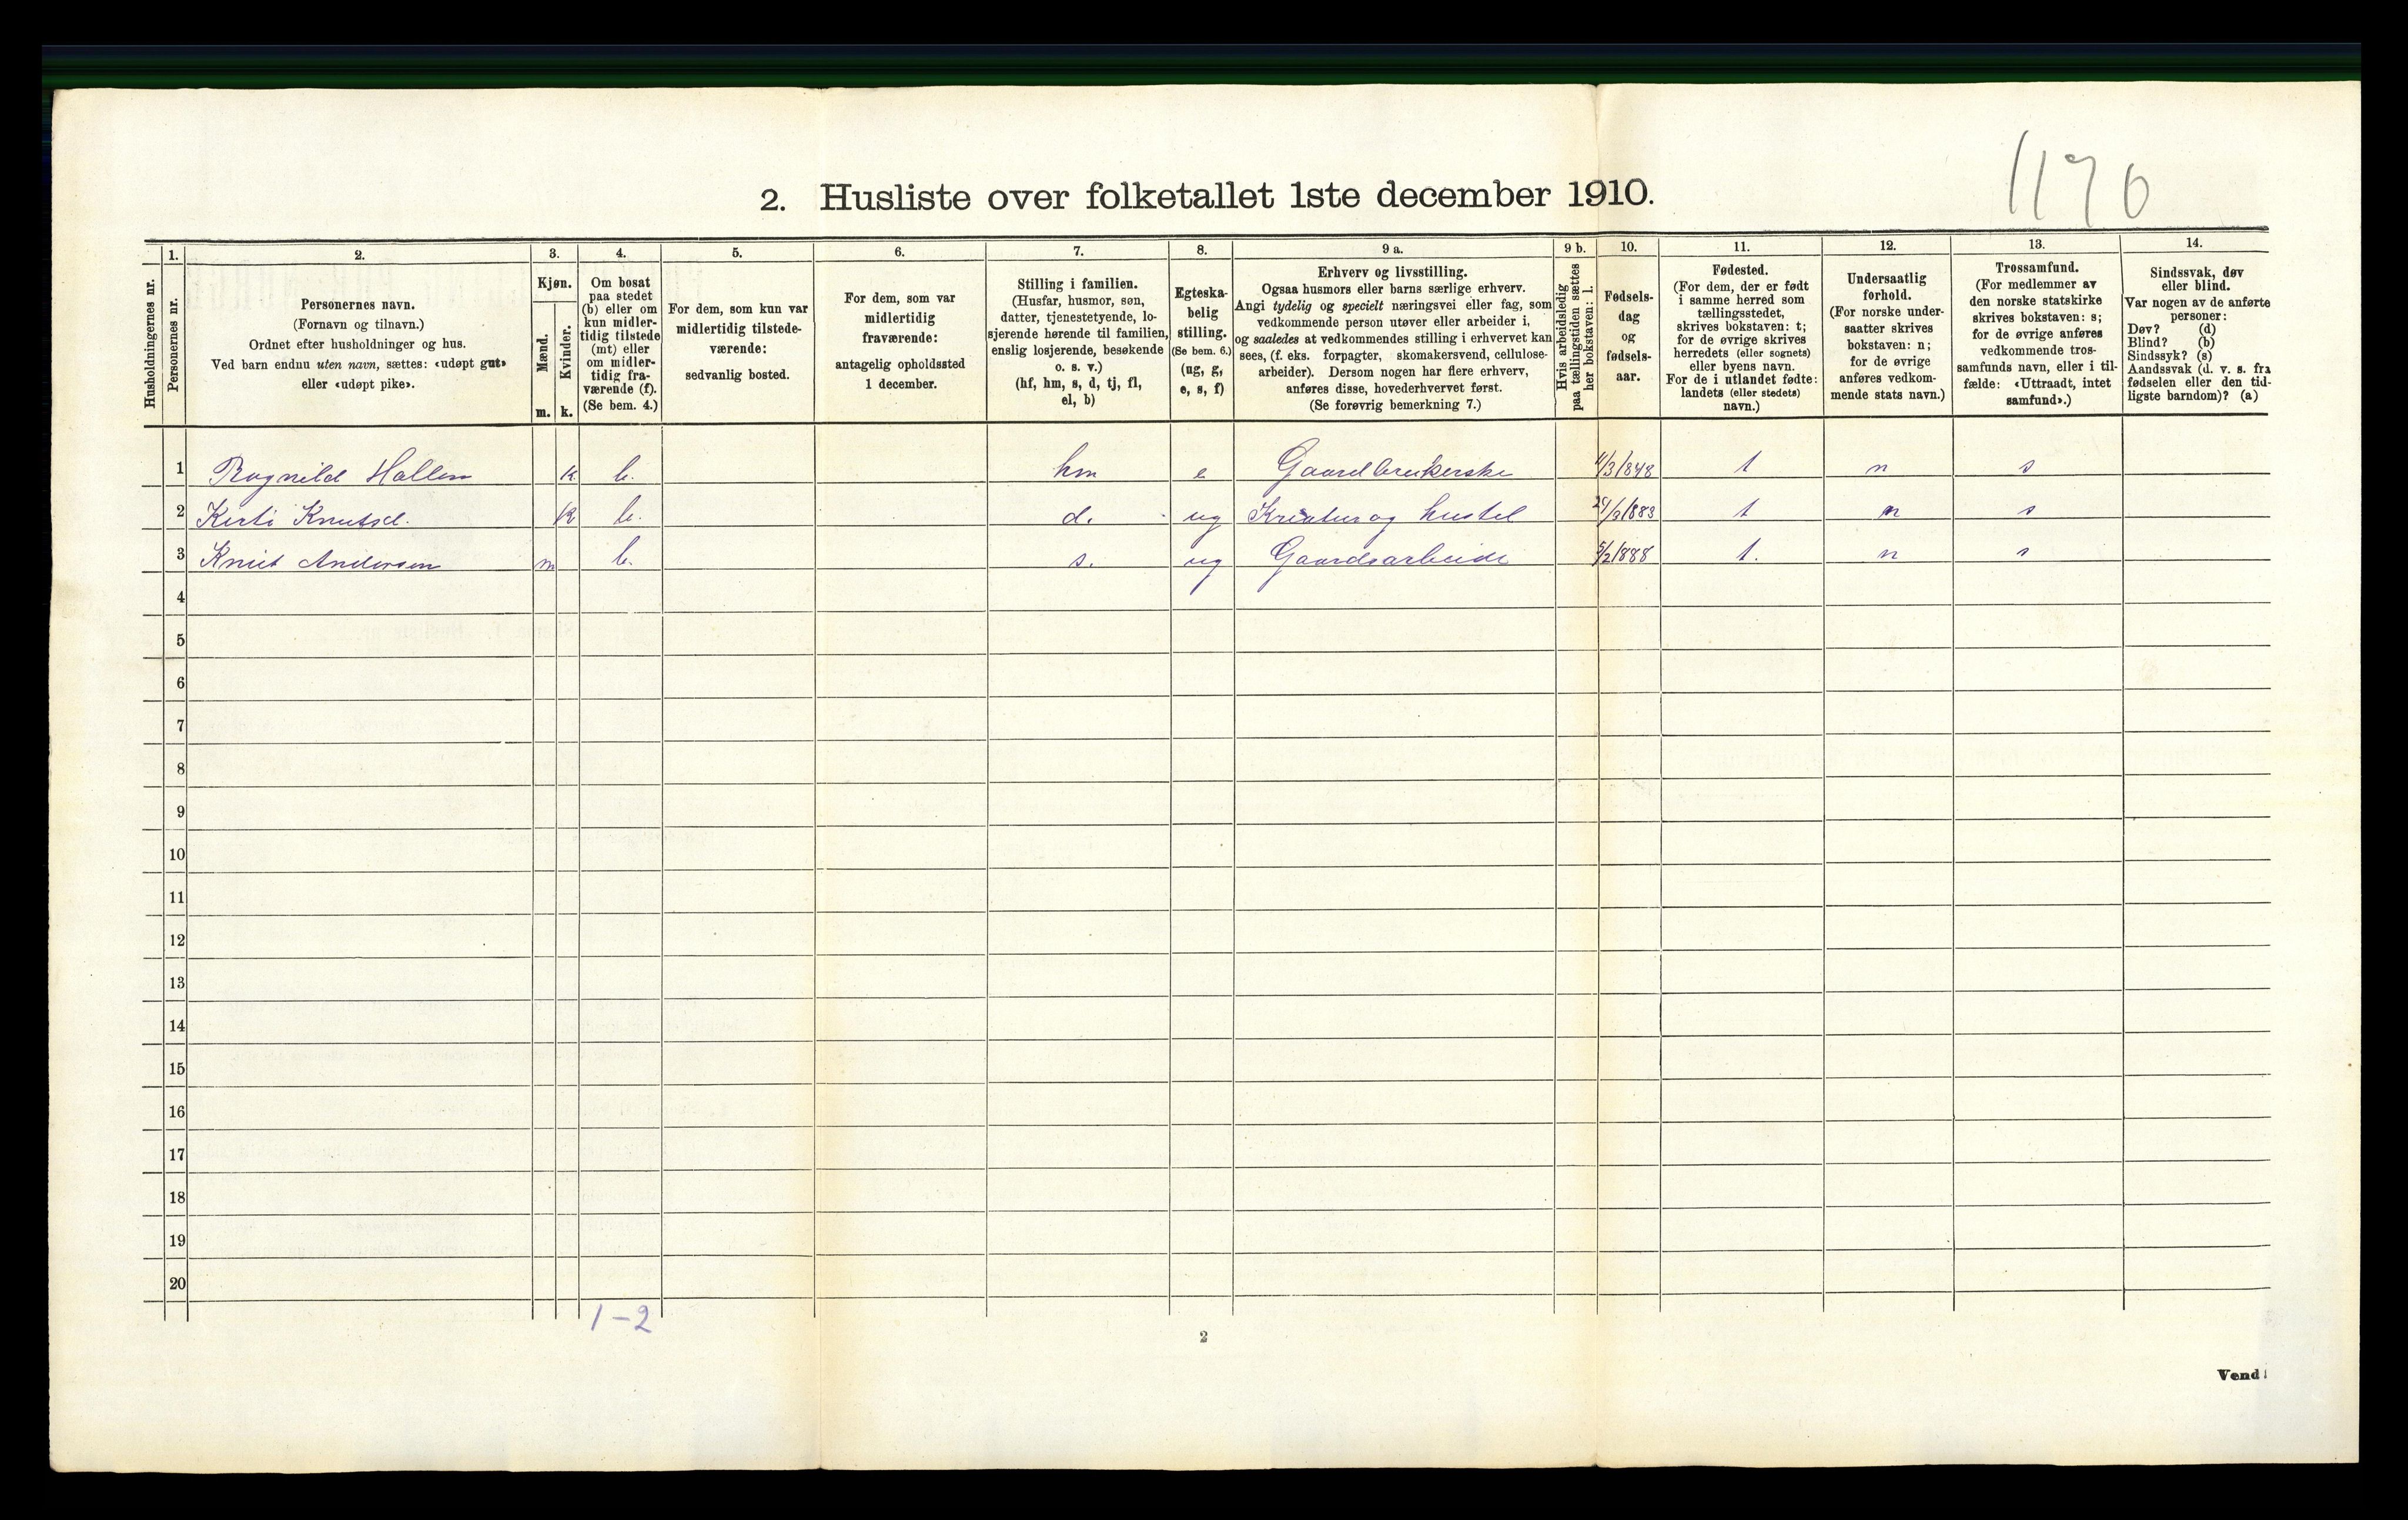 1170
2. Husliste over folketallet 1ste december 1910.
Husholdningernes nr.
1.
Personernes nr.
2.
Personernes navn.
(Fornavn og tilnavn.)
Ordnet efter husholdninger og hus.
Ved barn endnu uten navn, sættes: «udøpt gut»
eller «udøpt pike».
3.
Kjøn.
Mænd.
Kvinder.
m. k.
4.
Om bosat
paa stedet
(b) eller om
kun midler-
tidig tilstede
(mt) eller
om midler-
tidig fra-
værende (f).
(Se bem. 4.)
5.
For dem, som kun var
midlertidig tilstede-
værende:
sedvanlig bosted.
6.
For dem, som var
midlertidig
fraværende:
antagelig opholdssted
1 december.
7.
Stilling i familien.
(Husfar, husmor, søn,
datter, tjenestetyende, lo-
sjerende hørende til familien,
enslig losjerende, besøkende
o. s. v.)
(hf, hm, s, d, tj, fl,
el, b)
8.
Egteska-
belig
stilling.
(Se bem. 6.)
(ug, g,
e, s, f)
9 a.
Erhverv og livsstilling.
Ogsaa husmors eller barns særlige erhverv.
Angi tydelig og specielt næringsvei eller fag, som
vedkommende person utøver eller arbeider i,
og saaledes at vedkommendes stilling i erhvervet kan
sees, (f. eks. forpagter, skomakersvend, cellulose-
arbeider). Dersom nogen har flere erhverv,
anføres disse, hovederhvervet først.
(Se forøvrig bemerkning 7.)
9 b.
Hvis arbeidsledig
paa tællingstiden sættes
her bokstaven: l.
10.
Fødsels-
dag
og
fødsels-
aar.
11.
Fødested.
(For dem, der er født
i samme herred som
tællingsstedet,
skrives bokstaven: t;
for de øvrige skrives
herredets (eller sognets)
eller byens navn.
For de i utlandet fødte:
landets (eller stedets)
navn.)
12.
Undersaatlig
forhold.
(For norske under-
saatter skrives
bokstaven: n;
for de øvrige
anføres vedkom-
mende stats navn.)
13.
Trossamfund.
(For medlemmer av
den norske statskirke
skrives bokstaven: s;
for de øvrige anføres
vedkommende tros-
samfunds navn, eller i til-
fælde: «Uttraadt, intet
samfund».)
14.
Sindssvak, døv
eller blind.
Var nogen av de anførte
personer:
Døv? (d)
Blind? (b)
Sindssyk? (s)
Aandssvak (d. v. s. fra
fødselen eller den tid-
ligste barndom)? (a)
1 Ragnild Hallen k b. hm e Gaardbrukerske /3/848 t n s
2 Kirsti Knutsd. k b. d. ug Kreatur og hustel /9/883 t n s
3 Knut Andersen m b. s. ug Gaardsarbeide 5/2/888 t. n s
4
5
6
7
8
9
10
11
12
13
14
15
16
17
18
19
20
1-2
2
Vend!